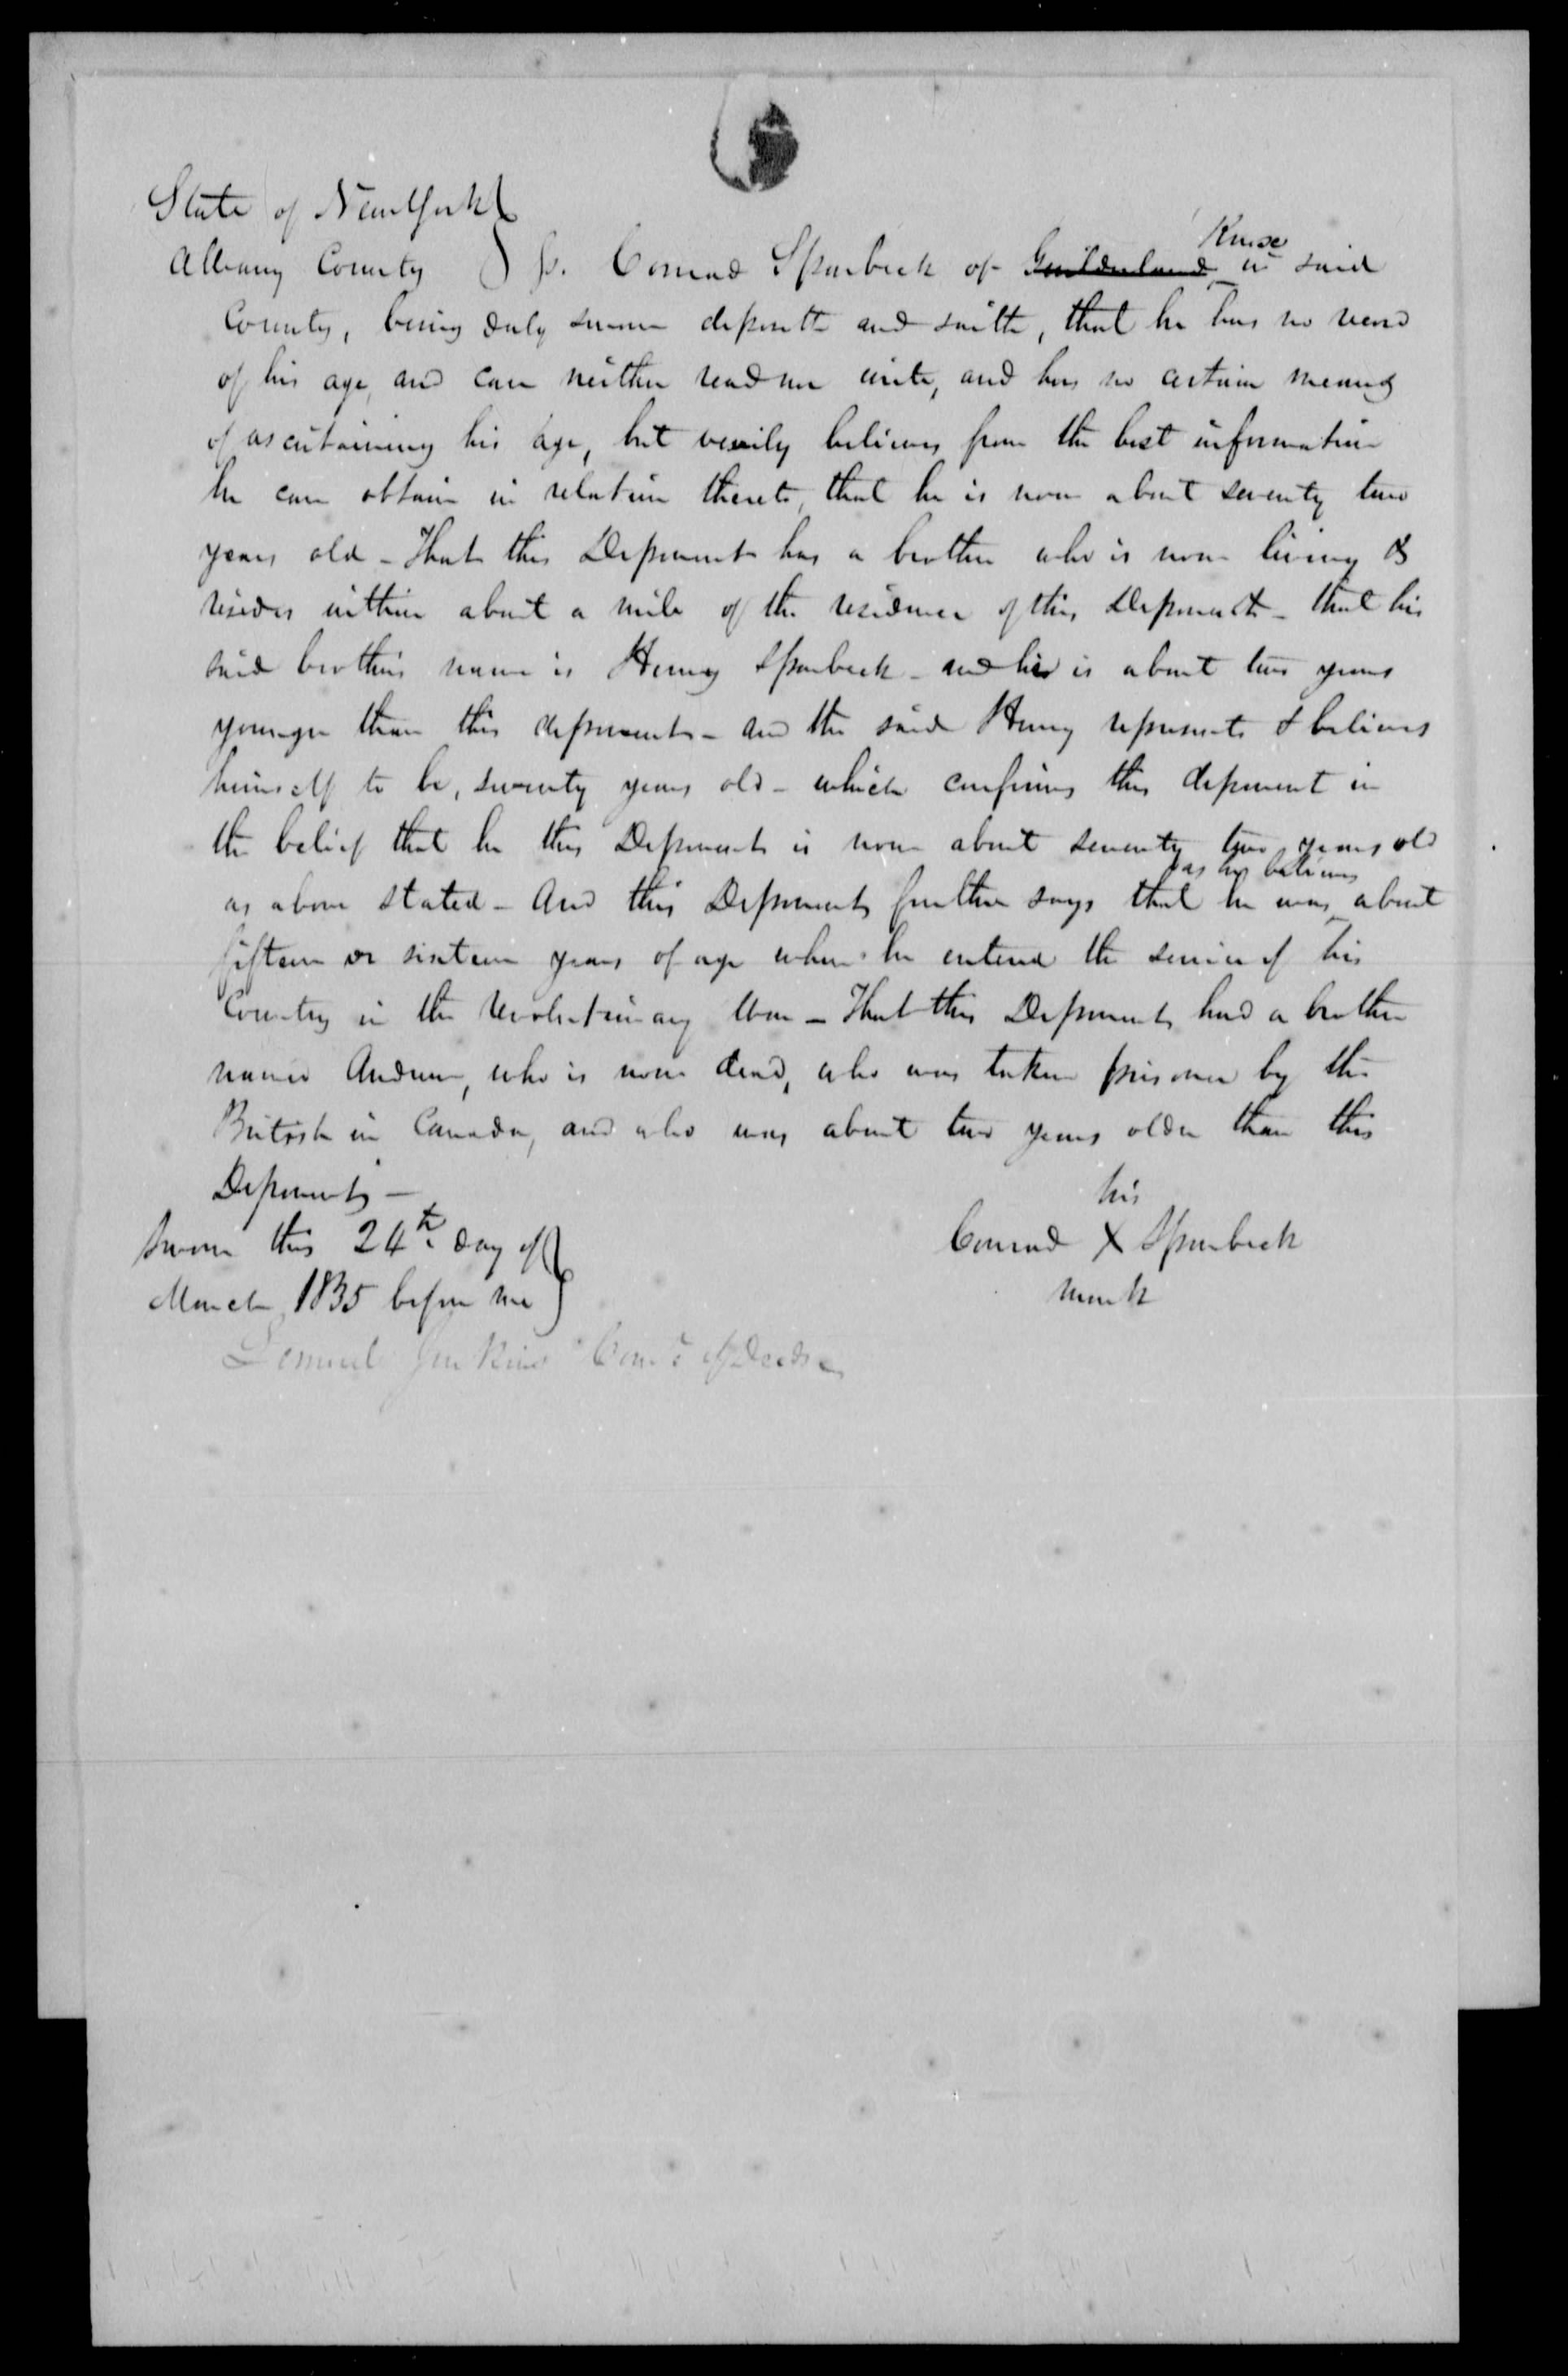 State of New York
Albany County } ss. Conrad Sparbeck of Guilderland Knox in said
County, being duly sworn deposeth and saith, that he has no record
of his age, and can neither read nor write, and has no certain means
of ascertaining his age, but verily believes from the best information
he can obtain in relation thereto, that he is now about seventy two
years old - That this Deponent has a brother who is now living &
resides within about a mile of the residence of this Deponent - that his
said brothers name is Henry Sparbeck - and he is about two years
younger than this deponent - and the said Henry represents & believes
himself to be, seventy years old - which confirms this deponent in
the belief that he this Deponent is now about seventy two years old
as above stated - And this Deponent further says that he was as he believes about
fifteen or sixteen years of age when he entered the service of his
Country in the Revolutionary War - That this Deponent had a brother
named Andrew, who is now dead, who was taken prisoner by the
British in Canada, and who was about two years older than this
Deponent -
Sworn this 24th day of
March 1835 before me
Lemuel Jenkins Comr of Deeds
his
Conrad X Sparbeck
mark